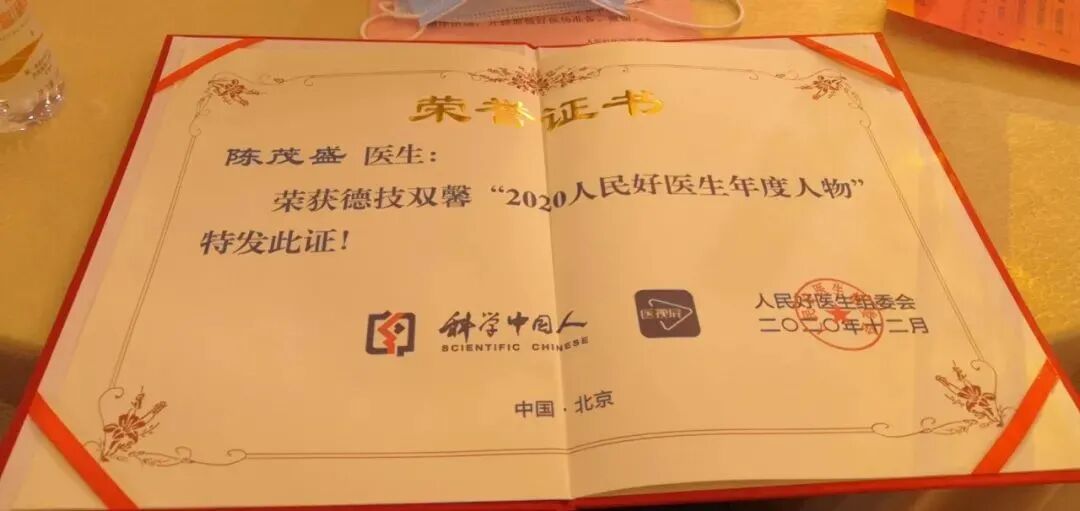 荣誉证书
陈茂盛 医生：
荣获德技双馨“2020人民好医生年度人物”
特发此证！
科学中国人
SCIENTIFIC CHINESE
医视屏
人民好医生组委会
二〇二〇年十二月
中国·北京